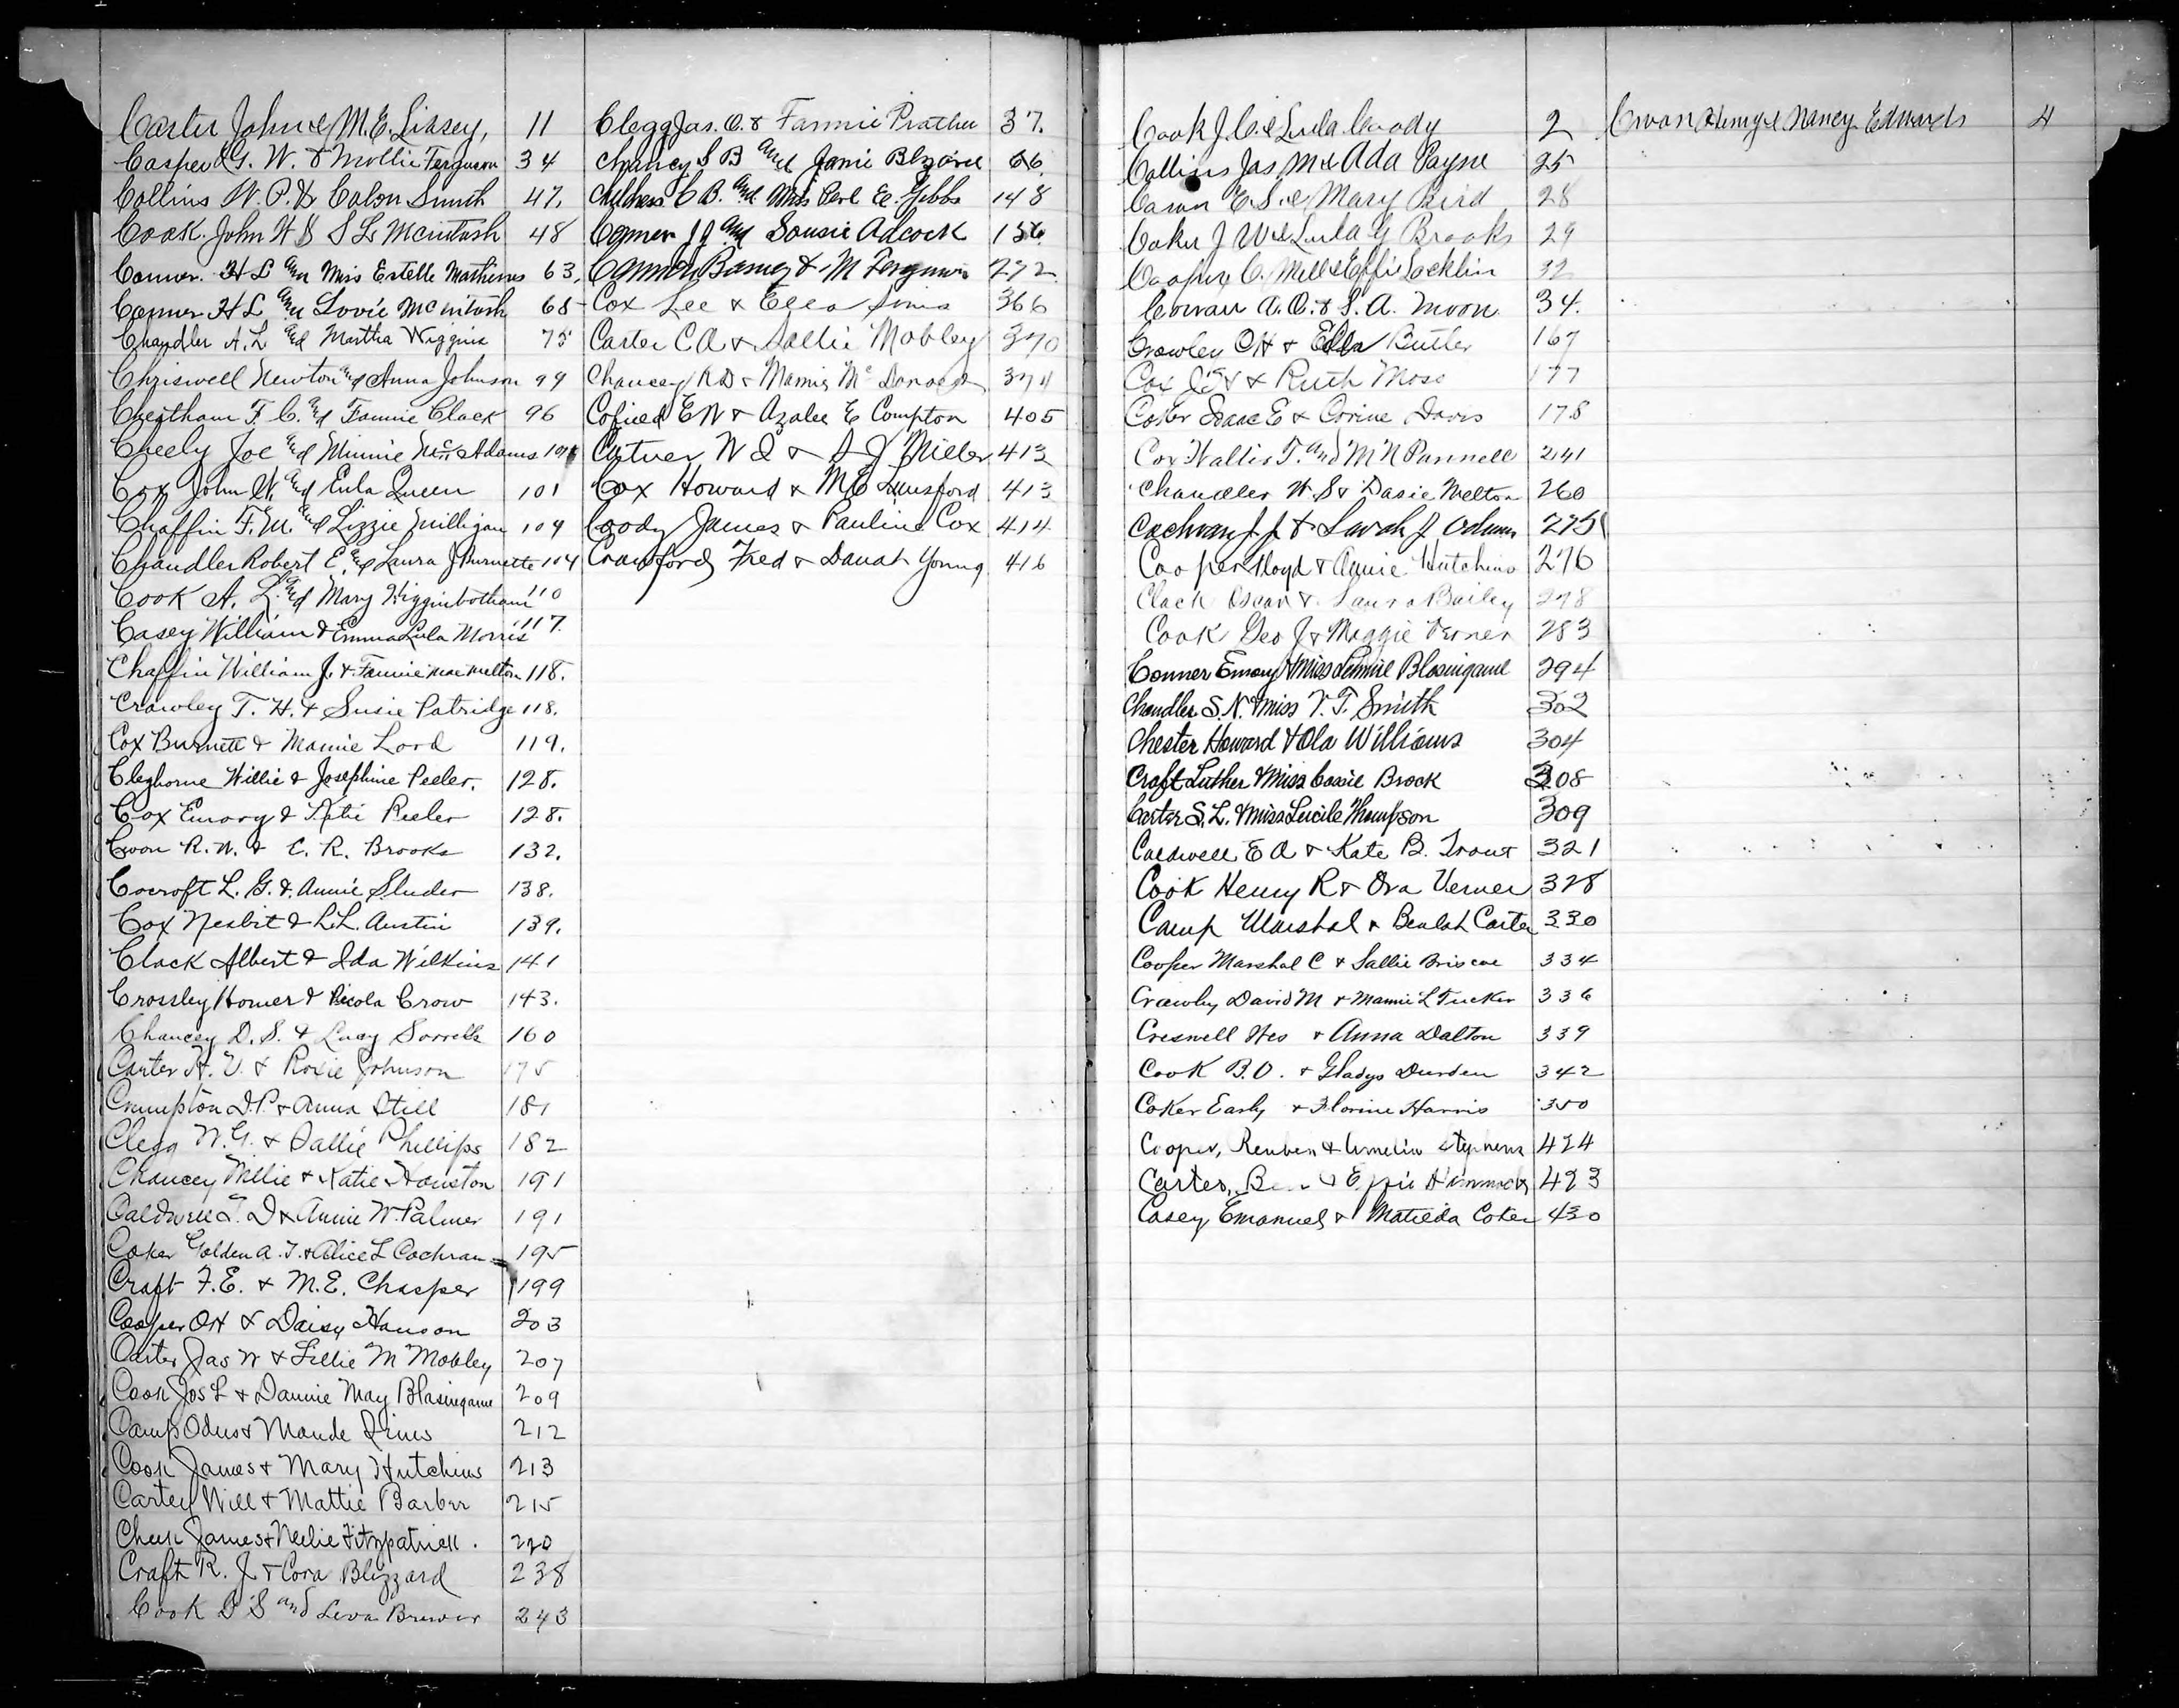 Carter John & M. E. Livsey, 11
Casper G. W. & Mollie Ferguson 34
Collins W. P. & Smith 47.
Cook John H & S L McIntosh 48
Conner H L and Miss Estelle Mathews 63,
Conner H L and Lovie McIntosh 68
Chandler A. L and Martha Wiggins 75
Chriswell Newton and Anna Johnson 99
Cheatham F. C. and Fannie Clack 96
Cheely Joe and Minnie McAdams
Cox John W. and Eula Queen 101
Chaffin F. M. and Lizzie Milligan 104
Chandler Robert E. and Laura J Burnette 104
Cook A. L. and Mary Higginbotham 110
Casey William & Emma Lula Morris 117.
Chaffin William J. & Fannie Mae Melton 118.
Crawley T. H. & Susie Patridge 118.
Cox Burnett & Mamie Lord 119.
Cleghorne Willie & Josephine Peeler. 128.
Cox Emory & Katie Peeler 128.
R. N. & C. R. Brooks 132.
Cocroft L. G. & Annie Studer 138.
Cox Nesbit & L. L. Austin 139.
Clack Albert & Ida Wilkins 141
Crossley Homer & Ricola Crow 143.
Chancey D. S. & Lucy Sorrells 160
Carter H. V. & Roxie Johnson 175
Crumpton D. P. & Anna Still 181
Clegg W. G. & Sallie Phillips 182
Chancey Willie & Katie Houston 191
Caldwell T. D & Annie W. Palmer 191
Coker Golden A. T. & Alice L Cochran 195
Craft F. E. & M. E. Chasper 199
Cooper O H & Daisy Hanson 203
Carter Jas W & Lillie M Mobley 207
Cook Jos L & Dannie May Blasingame 209
Camp Odus & Maude Sims 212
Cook James & Mary Hutchins 213
Carter Will & Mattie Barber 215
Cheek James & Nellie Fitzpatrick. 220
Craft R. J. & Cora Blizzard 238
Cook D S and Leva Brewer 243
Clegg Jas. O. & Fannie Prather 37.
Chancey S B and Janie Blizzard 66.
Childress C B. and Miss Perl E. Gibbs 148
Conner J J and Sousie Adcock 156
Conner Barney & M Ferguson 272
Cox Lee & Ella Sims 366
Carter C A & Sallie Mobley 370
Chancey R D & Mamie McDonald 374
Cofield E W & Azalee E Compton 405
W I & S J Miller 413
Cox Howard & M E Lunsford 413
Coody James & Pauline Cox 414
Crawford Fred & Danah Young 416
Cook J. C. & Lula Coody 2
Collins Jas M & Ada Payne 25
Cason E. S. & Mary Bird 28
Coker J W & Lula G Brooks 29
Cooper C. Mell & Effie Locklin 32
Cowan A. O. & S. A. Moon. 34.
Crowley O H & Ella Butler 167
Cox & Ruth Moss 177
Coker Isaac E & Corine Davis 178
Cox Wallis T. and M N Pannell 241
Chandler W. S & Dasie Melton 260
Cochran J. J. & Sarah J Odum 275
Cooper Floyd & Annie Hutchins 276
Clack Oscar & Laura Bailey 278
Cook Geo J & Maggie Verner 283
Conner Emory & Miss Lennie Blasingame 294
Chandler S. N. & Miss V. T. Smith 302
Chester Howard & Ola Williams 304
Craft Luther & Miss Cassie Brock 308
Carter S. L. & Miss Lucile Thompson 309
Caldwell E A & Kate B. Trout 321
Cook Henry R & Ora Verner 328
Camp Marshal & Beulah Carter 330
Cooper Marshal C & Sallie Briscoe 334
Crawley David M & Mamie L Tucker 336
Creswell Wes & Anna Dalton 339
Cook B. O. & Gladys Durden 342
Coker Early & Florine Harris 350
Cooper, Reuben & Stephens 424
Carter, Ben & Effie 423
Casey Emanuel & Matilda Coker 430
Henry & Nancy Edwards 4